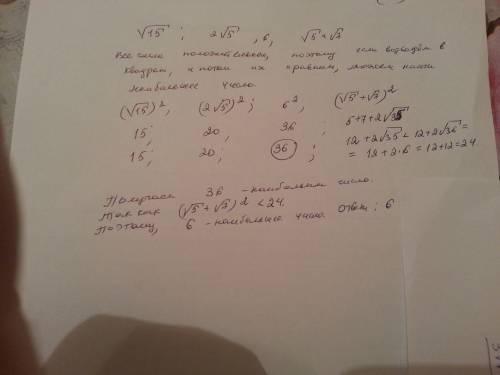 √15 ; 2√5 , 6, √5 + √7
Все числа положительные, поэтому если возводим в
квадрат, и потом их сравним, можем найти
наибольшее число.
(√15)², (2√5)²; 6², (√5 + √7)²
15; 20, 36 5+7+2√35
15; 20; 36 ; 12+2√35 < 12+2√36 =
= 12+2·6 = 12+12=24.
36 - наибольшим число.
Так как (√5 + √7)² < 24.
Поэтому, 6 - наибольшее число. Ответ: 6